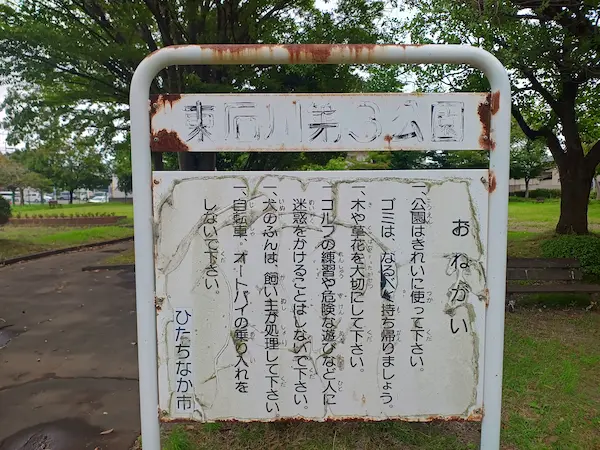 東石川第3公園
おねがい
一、公園はきれいに使って下さい。
ゴミは、なるべく持ち帰りましょう。
一、木や草花を大切にして下さい。
一、ゴルフの練習や危険な遊びなど人に
迷惑をかけることはしないで下さい。
一、犬のふんは、飼い主が処理して下さい。
一、自転車。オートバイの乗り入れを
しないで下さい。
ひたちなか市